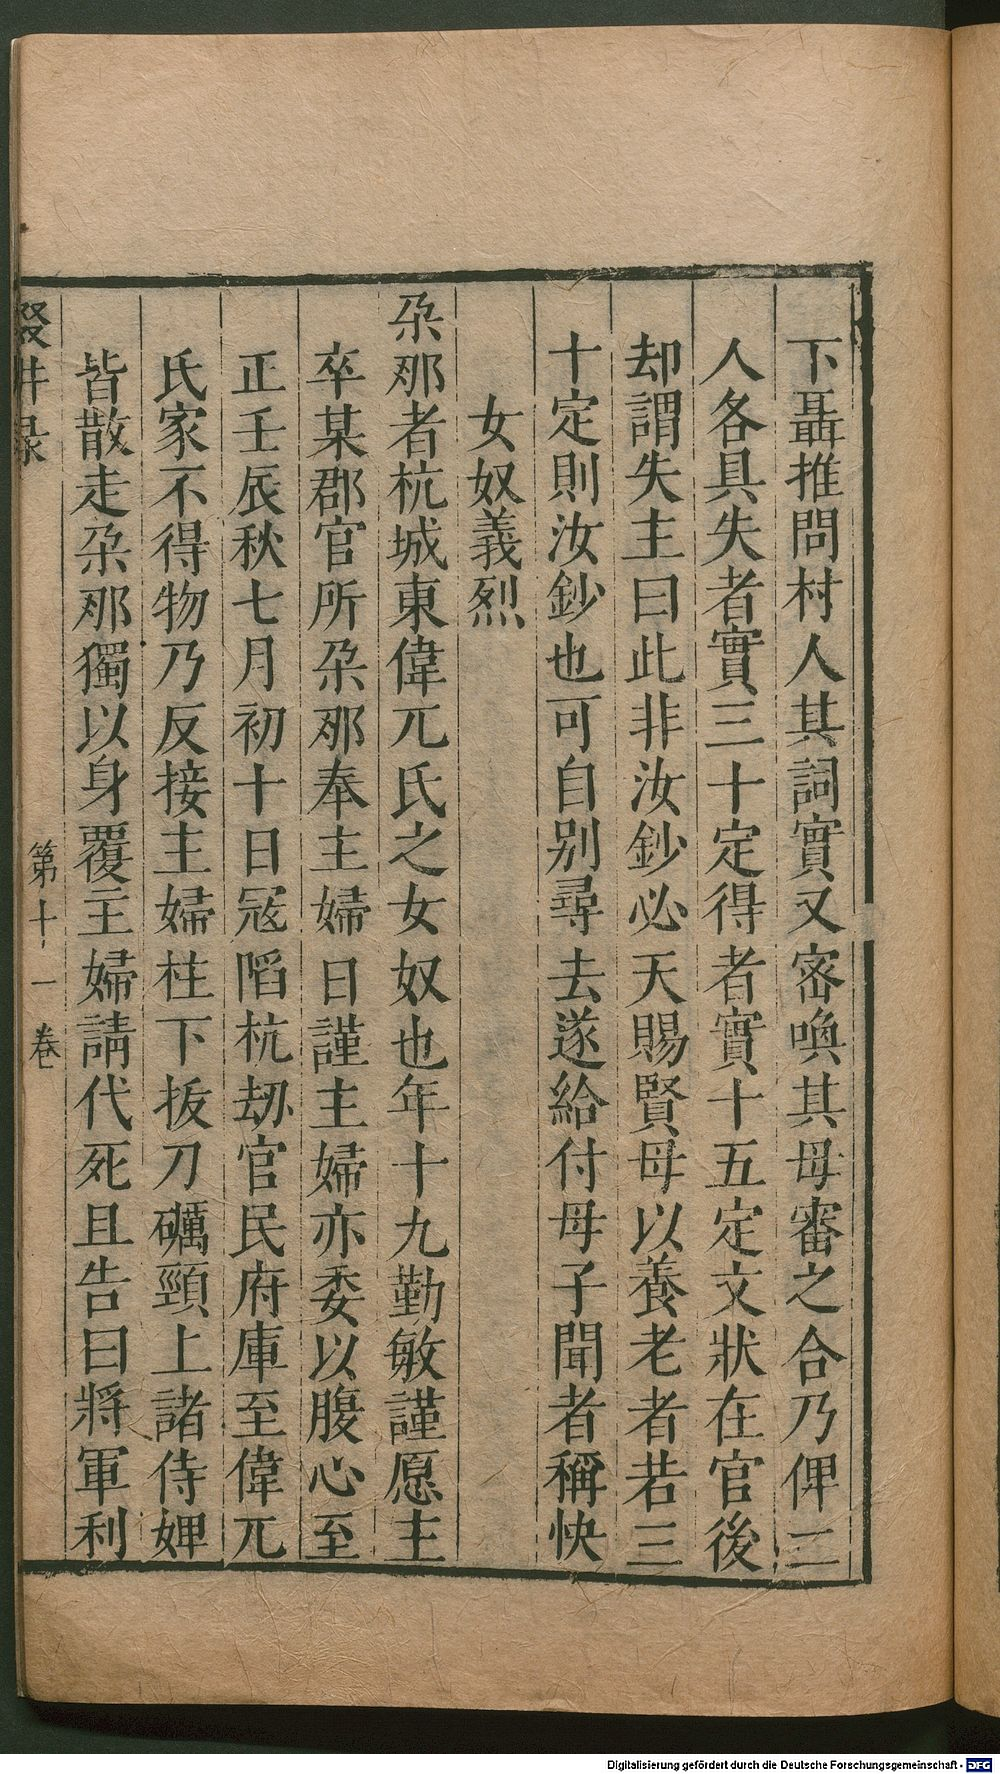 下聶推問村人其詞實又密喚其母審之合乃俾二
人各具失者實三十定得者實十五定文狀在官後
却謂失主曰此非汝鈔必天賜賢母以養老者若三
十定則汝鈔也可自别尋去遂給付母子聞者稱快
女奴義烈
朶那者杭城東偉兀氏之女奴也年十九勤敏謹愿主
卒某郡官所朶那奉主婦日謹主婦亦委以腹心至
正壬辰秋七月初十日冦陷杭劫官民府庫至偉兀
氏家不得物乃反接主婦柱下拔刀礪頸上諸侍婢
皆散走朶那獨以身覆主婦請代死且告曰將軍利
輟畊录
第十一卷
Digitalisierung gefördert durch die Deutsche Forschungsgemeinschaft - DFG